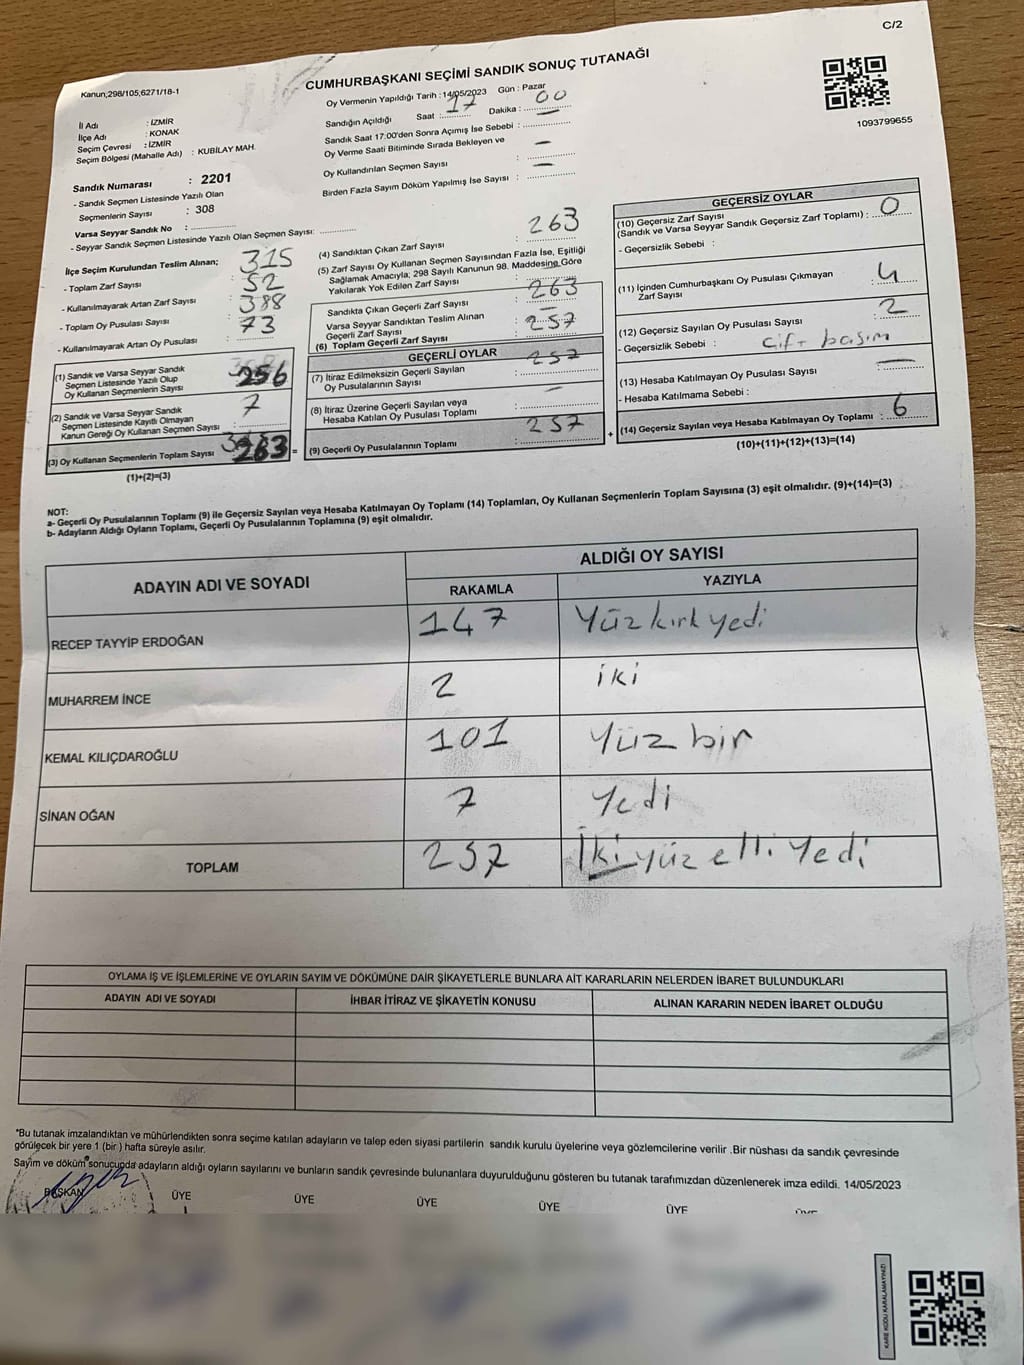 C/2
Kanun;298/105,6271/18-1
CUMHURBAŞKANI SEÇİMİ SANDIK SONUÇ TUTANAĞI
1093799655
İl Adı : İZMİR
İlçe Adı : KONAK
Seçim Çevresi : İZMİR
Seçim Bölgesi (Mahalle Adı) : KUBİLAY MAH.
Sandık Numarası : 2201
- Sandık Seçmen Listesinde Yazılı Olan
Seçmenlerin Sayısı : 308
Varsa Seyyar Sandık No :
- Seyyar Sandık Seçmen Listesinde Yazılı Olan Seçmen Sayısı:
İlçe Seçim Kurulundan Teslim Alınan;
- Toplam Zarf Sayısı : 315
- Kullanılmayarak Artan Zarf Sayısı : 52
- Toplam Oy Pusulası Sayısı : 388
- Kullanılmayarak Artan Oy Pusulası : 73
(1) Sandık ve Varsa Seyyar Sandık
Seçmen Listesinde Yazılı Olup
Oy Kullanan Seçmenlerin Sayısı 256
(2) Sandık ve Varsa Seyyar Sandık
Seçmen Listesinde Kayıtlı Olmayan
Kanun Gereği Oy Kullanan Seçmen Sayısı : 7
(3) Oy Kullanan Seçmenlerin Toplam Sayısı 263
(1)+(2)=(3)
Oy Vermenin Yapıldığı Tarih :14/05/2023 Gün : Pazar
Sandığın Açıldığı Saat : 17 Dakika : 00
Sandık Saat 17:00'den Sonra Açımış İse Sebebi :
Oy Verme Saati Bitiminde Sırada Bekleyen ve
Oy Kullandırılan Seçmen Sayısı : —
Birden Fazla Sayım Döküm Yapılmış İse Sayısı : —
(4) Sandıktan Çıkan Zarf Sayısı : 263
(5) Zarf Sayısı Oy Kullanan Seçmen Sayısından Fazla İse, Eşitliği
Sağlamak Amacıyla; 298 Sayılı Kanunun 98. Maddesine Göre
Yakılarak Yok Edilen Zarf Sayısı :
Sandıkta Çıkan Geçerli Zarf Sayısı : 263
Varsa Seyyar Sandıktan Teslim Alınan
Geçerli Zarf Sayısı : —
(6) Toplam Geçerli Zarf Sayısı : 257
GEÇERLİ OYLAR
(7) İtiraz Edilmeksizin Geçerli Sayılan
Oy Pusulalarının Sayısı : 257
(8) İtiraz Üzerine Geçerli Sayılan veya
Hesaba Katılan Oy Pusulası Toplamı : —
(9) Geçerli Oy Pusulalarının Toplamı : 257
GEÇERSİZ OYLAR
(10) Geçersiz Zarf Sayısı
(Sandık ve Varsa Seyyar Sandık Geçersiz Zarf Toplamı) : 0
- Geçersizlik Sebebi :
(11) İçinden Cumhurbaşkanı Oy Pusulası Çıkmayan
Zarf Sayısı : 4
(12) Geçersiz Sayılan Oy Pusulası Sayısı : 2
- Geçersizlik Sebebi : Çift basım
(13) Hesaba Katılmayan Oy Pusulası Sayısı : —
- Hesaba Katılmama Sebebi :
(14) Geçersiz Sayılan veya Hesaba Katılmayan Oy Toplamı : 6
(10)+(11)+(12)+(13)=(14)
NOT:
a- Geçerli Oy Pusulalarının Toplamı (9) ile Geçersiz Sayılan veya Hesaba Katılmayan Oy Toplamı (14) Toplamları, Oy Kullanan Seçmenlerin Toplam Sayısına (3) eşit olmalıdır. (9)+(14)=(3)
b- Adayların Aldığı Oyların Toplamı, Geçerli Oy Pusulalarının Toplamına (9) eşit olmalıdır.
ADAYIN ADI VE SOYADI ALDIĞI OY SAYISI
RAKAMLA YAZIYLA
RECEP TAYYİP ERDOĞAN 147 Yüz kırk yedi
MUHARREM İNCE 2 iki
KEMAL KILIÇDAROĞLU 101 Yüz bir
SİNAN OĞAN 7 Yedi
TOPLAM 257 İki yüz elli Yedi
OYLAMA İŞ VE İŞLEMLERİNE VE OYLARIN SAYIM VE DÖKÜMÜNE DAİR ŞİKAYETLERLE BUNLARA AİT KARARLARIN NELERDEN İBARET BULUNDUKLARI
ADAYIN ADI VE SOYADI İHBAR İTİRAZ VE ŞİKAYETİN KONUSU ALINAN KARARIN NEDEN İBARET OLDUĞU
*Bu tutanak imzalandıktan ve mühürlendikten sonra seçime katılan adayların ve talep eden siyasi partilerin sandık kurulu üyelerine veya gözlemcilerine verilir .Bir nüshası da sandık çevresinde
görülecek bir yere 1 (bir ) hafta süreyle asılır.
Sayım ve döküm sonucunda adayların aldığı oyların sayılarını ve bunların sandık çevresinde bulunanlara duyurulduğunu gösteren bu tutanak tarafımızdan düzenlenerek imza edildi. 14/05/2023
BAŞKAN ÜYE ÜYE ÜYE ÜYE ÜYE
KARE KODU KARALAMAYINIZ!